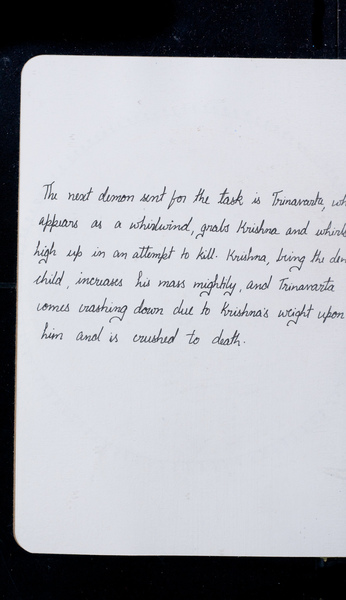 The next demon sent for the task is Trinavarta, wh
appears as a whirlwind, grabs Krishna and whirls
high up in an attempt to kill. Krishna, being the dem
child, increases his mass mightily, and Trinavarta
comes crashing down due to Krishna's weight upon
him and is crushed to death.